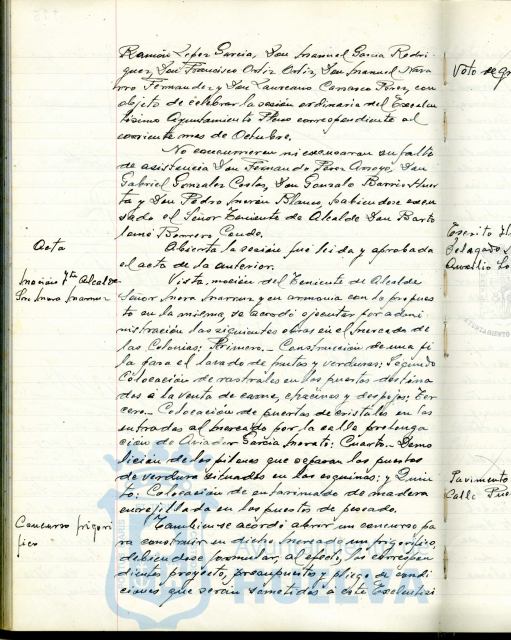 Ramón Lopez Garcia, Don Manuel Garcia Rodri-
guez, Don Francisco Ortiz Ortiz, Don Manuel Nava
rro Fernandez y Don Laureano Carrasco Perez, con
objeto de celebrar la sesión ordinaria del Excelen-
tisimo Ayuntamiento Pleno correspondiente al
corriente mes de Octubre.
No concurrieron ni excusaron su falta
de asistencia Don Fernando Perez Arroyo, Don
Gabriel Gonzalez Costas, Don Gonzalo Barrios Huer
ta y Don Pedro Morón Blanco, habiendose excu-
sado el Señor Teniente de Alcalde Don Barto
lomé Borrero Conde.
Acta
Abierta la sesión fué leida y aprobada
el acta de la anterior.
Moción Tte Alcalde
Sr. Mora Inarruz
Vista moción del Teniente de Alcalde
Señor Mora Inarruz y en armonia con lo propues
to en la misma, se acordó ejecutar por admi-
nistración las siguientes obras en el Mercado de
las Colonias: Primero.- Construcción de una pi
la para el lavado de frutas y verduras; Segundo
Colocación de rastrales en los puestos destina
dos a la venta de carne, chacinas y despojos; Ter
cero.- Colocación de puertas de cristales en las
entradas al mercado por la calle prolonga
ción de Aviador Garcia Morato; Cuarto.- Demo
lición de los pilares que separan los puestos
de verdura situados en las esquinas; y Quin
to: Colocación de entarimado de madera
enrejillada en los puestos de pescado.
Concurso frigori
fico
Tambien se acordó abrir un concurso pa
ra construir en dicho Mercado un frigorifico,
debiendose formular, al efecto, los correspon
diente proyecto, presupuesto y pliego de condi
ciones que serán sometidos a este Excelentisi
Voto de gra
Escrito
Delegado
Aurelio Lo
Pavimento
Calle Pue
HUELVA